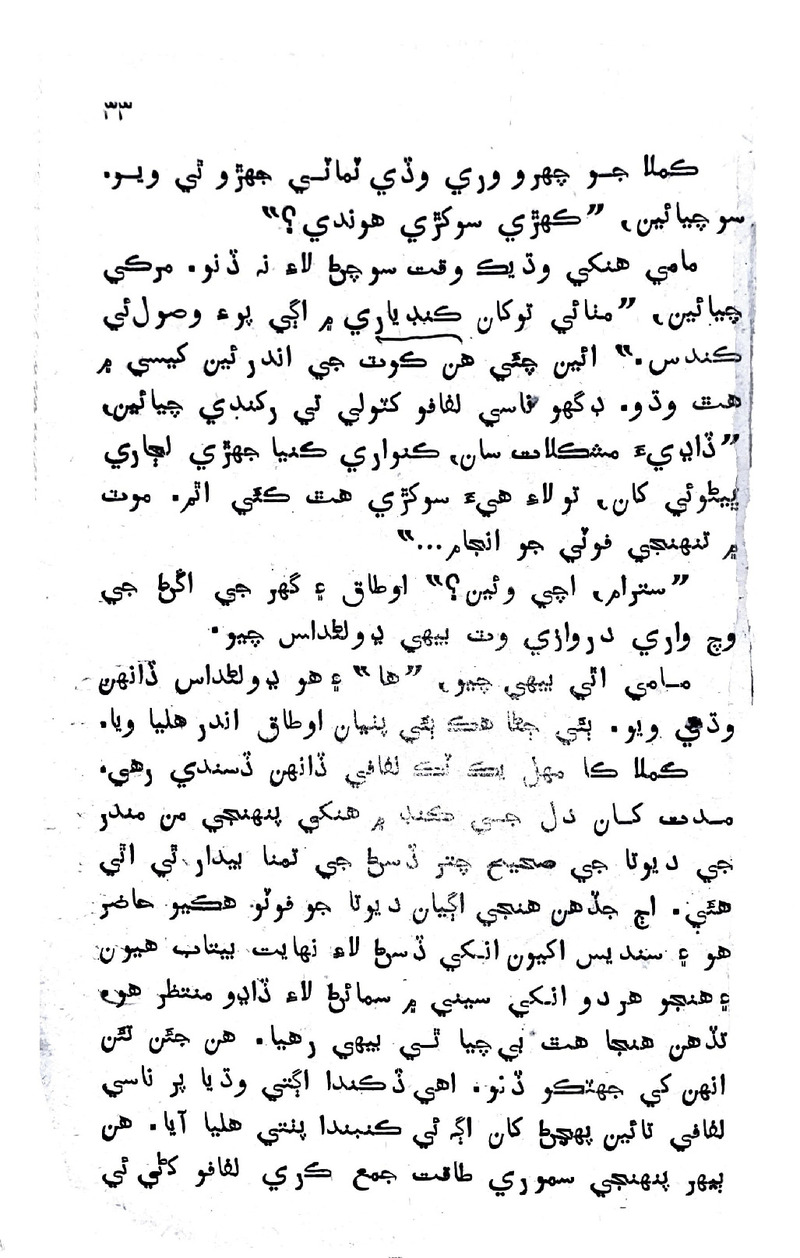 ٣٣
ڪملا جو چهرو وري وڏي ٽماٽي جهڙو ٿي ويو.
سوچيائين، ”ڪهڙي سوکڙي هوندي؟“
مامي هنکي وڌيڪ وقت سوچڻ لاءِ نہ ڏنو. مرڪي
چيائين، ”مٺائي توکان ڪنڊياري ۾ اڳي پوءِ وصول ئي
ڪندس.“ ائين چئي هن ڪوٽ جي اندرئين کيسي ۾
هٿ وڌو. ڊگهو ناسي لفافو کٽولي تي رکندي چيائين،
”ڏاڍيءَ مشڪلات سان، ڪنواري ڪنيا جهڙي لڄاري
ڀيڻوئي کان، تو لاءِ هيءَ سوکڙي هٿ ڪئي اٿم. موٽ
۾ تنهنجي فوٽي جو انجام...“
”سترام، اچي وئين؟“ اوطاق ۽ گهر جي اڱڻ جي
وچ واري دروازي وٽ بيهي ڊولڻداس چيو.
مامي اٿي بيهي چيو، ”ها“ ۽ هو ڊولڻداس ڏانهن
وڌي ويو. ٻئي ڄڻا هڪ ٻئي پٺيان اوطاق اندر هليا ويا.
ڪملا ڪا مهل يڪ ٽڪ لفافي ڏانهن ڏسندي رهي.
مدت کان دل جي ڪنڊ ۾ هنکي پنهنجي من مندر
جي ديوتا جي صحيح چتر ڏسڻ جي تمنا بيدار ٿي اٿي
هئي. اڄ جڏهن هنجي اڳيان ديوتا جو فوٽو هڪيو حاضر
هو ۽ سنديس اکيون انکي ڏسڻ لاءِ نهايت بيتاب هيون
۽ هنجو هردو انکي سيني ۾ سمائڻ لاءِ ڏاڍو منتظر هو،
تڏهن هنجا هٿ بي چيا ٿي بيهي رهيا. هن جئن تئن
انهن کي جهٽڪو ڏنو. اهي ڏڪندا اڳتي وڌيا پر ناسي
لفافي تائين پهچڻ کان اڳ ئي ڪنبندا پٺتي هليا آيا. هن
ٻيهر پنهنجي سموري طاقت جمع ڪري لفافو کڻي ئي